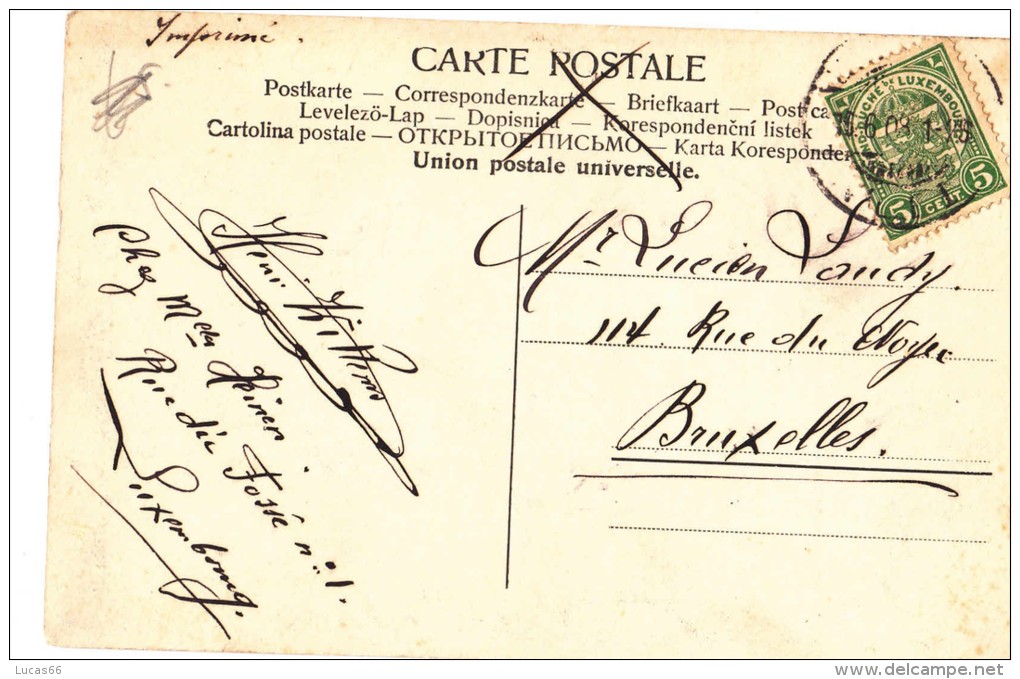 Imprimé.
CARTE POSTALE
Postkarte — Correspondenzkarte — Briefkaart — Post ca
Levelezö-Lap — Dopisnica — Korespondenční listek
Cartolina postale — ОТКРЫТОЕ ПИСЬМО — Karta Koresponden
Union postale universelle.
DUCHÉ DE LUXEMBOURG
19.6.09 1-
5 CENT. 5
Mr Lucien
114 Rue du Noyer
Bruxelles.
Henri
chez Mela
Rue du Fossé no 1.
Luxembourg.
Lucas66
www.delcampe.net